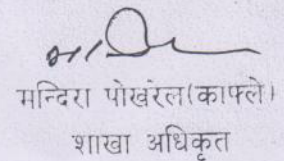 मन्दिरा पोखरेल(काफ्ले)
शाखा अधिकृत